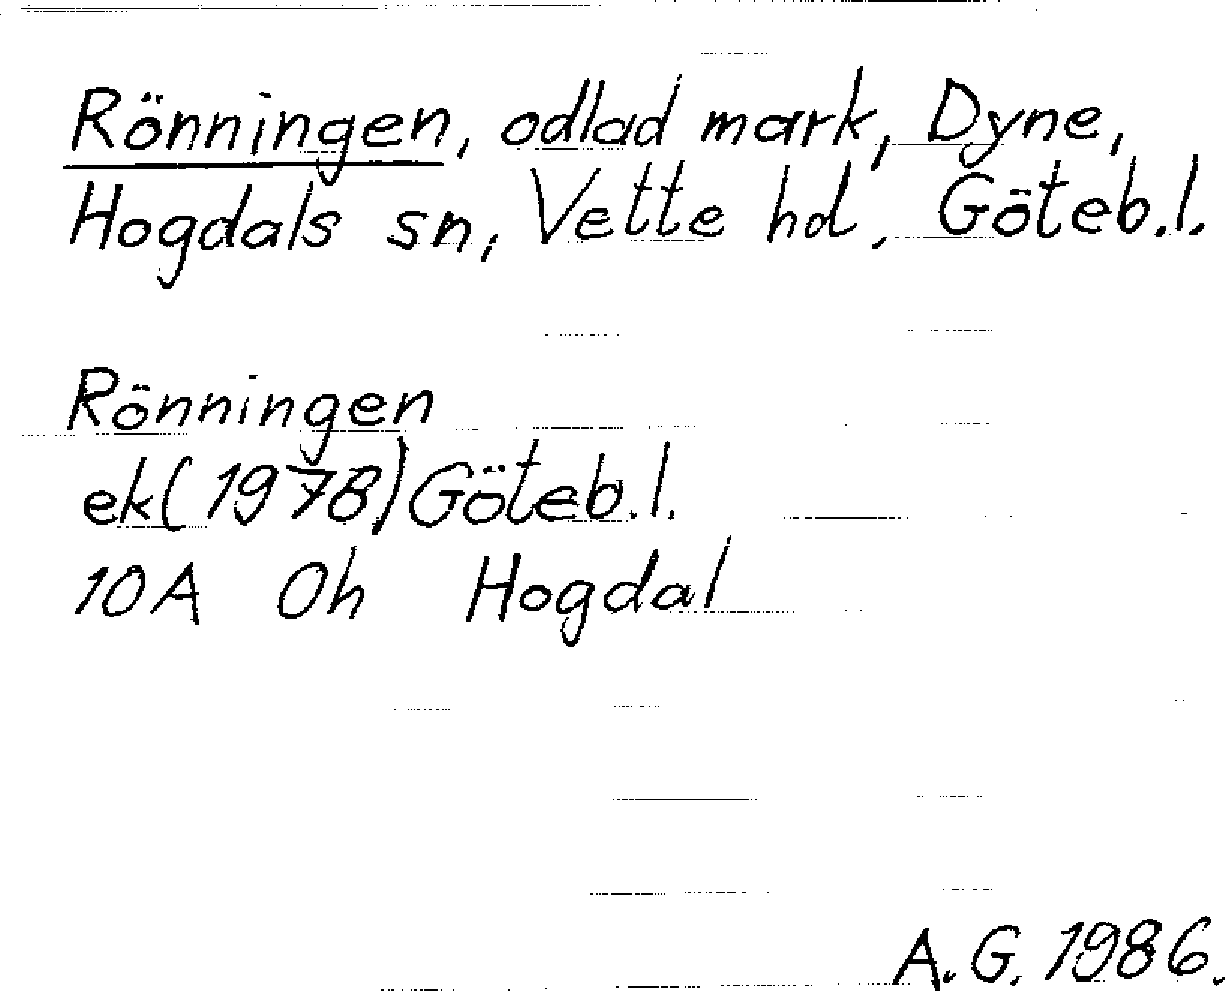 Rönningen, odlad mark, Dyne,
Hogdals sn, Vette hd, Göteb.l.
Rönningen
ek(1978)Göteb.l.
10A Oh Hogdal
A.G. 1986.